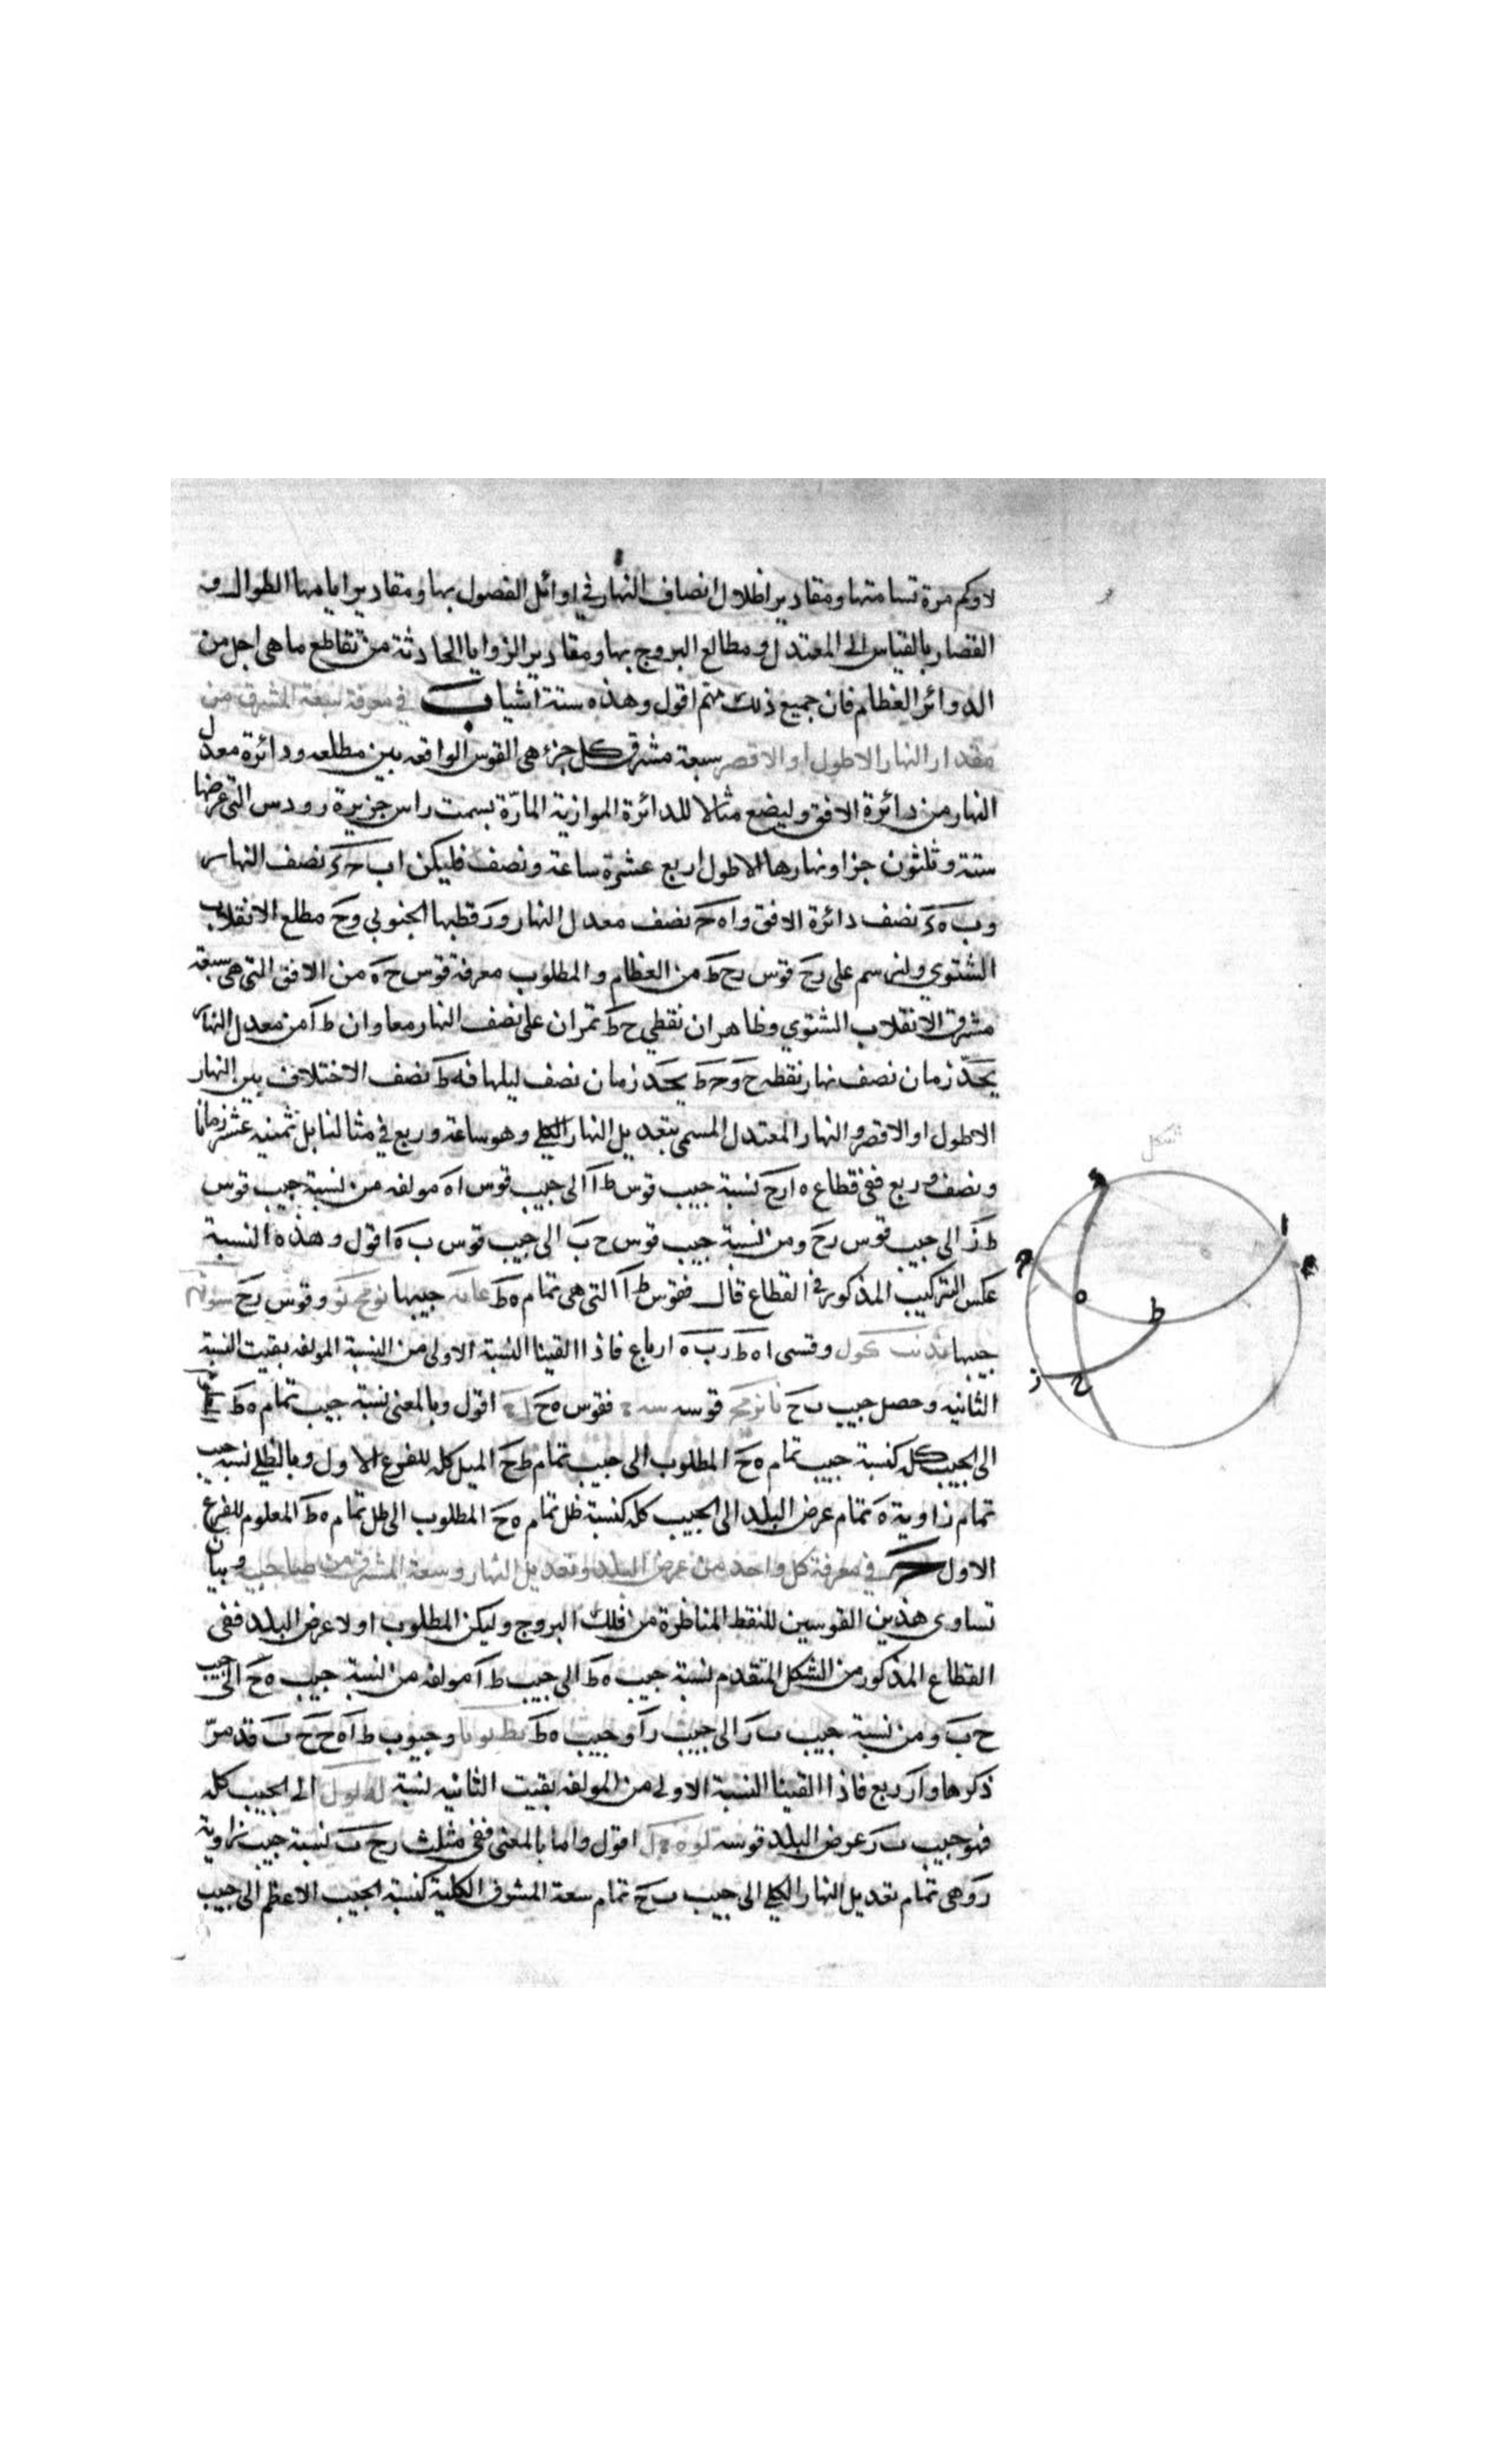 لا وكم مرة تسامتها ومقادير اظلال انصاف النهار في اوائل الفصول بها ومقادير ايامها الطوال و
القصار بالقياس الى المعتدل ومطالع البروج بها ومقادير الزوايا الحادثة من تقاطع ما هي اجل من
الدوائر العظام فان جميع ذلك مهم اقول وهذه ستة اشيا ب في معرفة سعة المشرق من
مقدار النهار الاطول او الاقصر سعة مشرق كل جزء هي القوس الواقعه بين مطلعه ودائرة معدل
النهار من دائرة الافق وليضع مثالا للدائرة الموازية المارّة بسمت راس جزيرة رودس التي عرضها
ستة وثلثون جزا ونهارها الاطول اربع عشرة ساعة ونصف فليكن اب حد نصف النهار
وب ه د نصف دائرة الافق واه ح نصف معدل النهار ور قطبها الجنوبي وح مطلع الانقلاب
الشتوي ولنرسم على رح قوس رح ط من العظام والمطلوب معرفة قوس ح ه من الافق التي هي سعة
مشرق الانقلاب الشتوي وظاهر ان نقطي ح ط تمران على نصف النهار معا وان ط ا من معدل النهار
يحد زمان نصف نهار نقطه ح و ح ط يحد زمان نصف ليلها فه ط نصف الاختلاف بين النهار
الاطول او الاقصر والنهار المعتدل المسمى بتعديل النهار الكلي وهو ساعة وربع في مثالنا بل ثمنيه عشر زمانا
ونصف وربع ففي قطاع ه ا ر ح نسبة جيب قوس ط ا الى جيب قوس اه مولفه من نسبة جيب قوس
ط ز الى جيب قوس رح ومن نسبة جيب قوس ح ب الى جيب قوس ب ه اقول وهذه النسبة
عكس التركيب المذكور في القطاع قال فقوس ط ا التي هي تمام ه ط عا يه جيبها نو مح نو وقوس رح
جيبها وقسي اه ط ر ب ه ارباع فاذا القينا النسبة الاولى من النسبة المولفه بقيت النسبة
الثانيه وحصل جيب ب ح قوسه فقوس ه ح اقول وبالمعنى نسبة جيب تمام ه ط
الى الجيب كله كنسبة جيب تمام ه ح المطلوب الى جيب تمام ط ح الميل كله للفرع الاول وبالظلي نسبة جيب
تمام زاوية ه تمام عرض البلد الى الجيب كله كنسبة ظل تمام ه ح المطلوب الى ظل تمام ه ط المعلوم للفرع
الاول ج في معرفة كل واحد من عرض البلد وتعديل النهار وسعة المشرق من صاحبيه وبيان
تساوي هذين القوسين للنقط المناظرة من فلك البروج وليكن المطلوب اولا عرض البلد ففي
القطاع المذكور من الشكل المتقدم نسبة جيب ه ط الى جيب ط ا مولفه من نسبة جيب ه ح الى جيب
ح ب ومن نسبة جيب ب ر الى جيب را وجيب ه ط وجيوب ط ا ه ح ح ب قد مرّ
ذكرها وار ربع فاذا القينا النسبة الاولى من المولفه بقيت الثانيه نسبة الى الجيب كله
فهو جيب ب ر عرض البلد قوسه اقول واما بالمعنى ففي مثلث رح ب نسبة جيب زاوية
ر وهي تمام تعديل النهار الكلي الى جيب ب ح تمام سعة المشرق الكلية كنسبة الجيب الاعظم الى جيب
شكل
ا
ه
ط
ح
ز